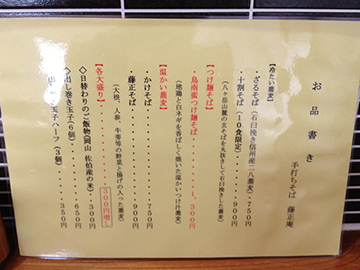 お品書き
手打ちそば 藤正庵
【冷たい蕎麦】
・ざるそば(石臼挽き信州産二八蕎麦)
・・・・・・・・・・750円
・十割そば(10食限定)・・・900円
(八ヶ岳山麓の玄そばを丸抜きして石臼挽きした蕎麦)
【つけ麺そば】
・鳥南蛮つけ麺そば・・・・・1,300円
(地鶏と白ネギを香ばしく焼いた温かいつけ汁蕎麦)
【温かい蕎麦】
・かけそば・・・・・・・・・750円
・藤正そば・・・・・・・・・900円
(大根、人参、牛蒡等の野菜と揚げの入った蕎麦)
【各大盛り】・・・・・・・300円増し
◇日替わりのご飯物(岡山 佐伯産の米)
・・・・・・・・・・300円
◇出し巻き玉子(6個)・・・・・650円
玉子ハーフ(3個)・・・350円